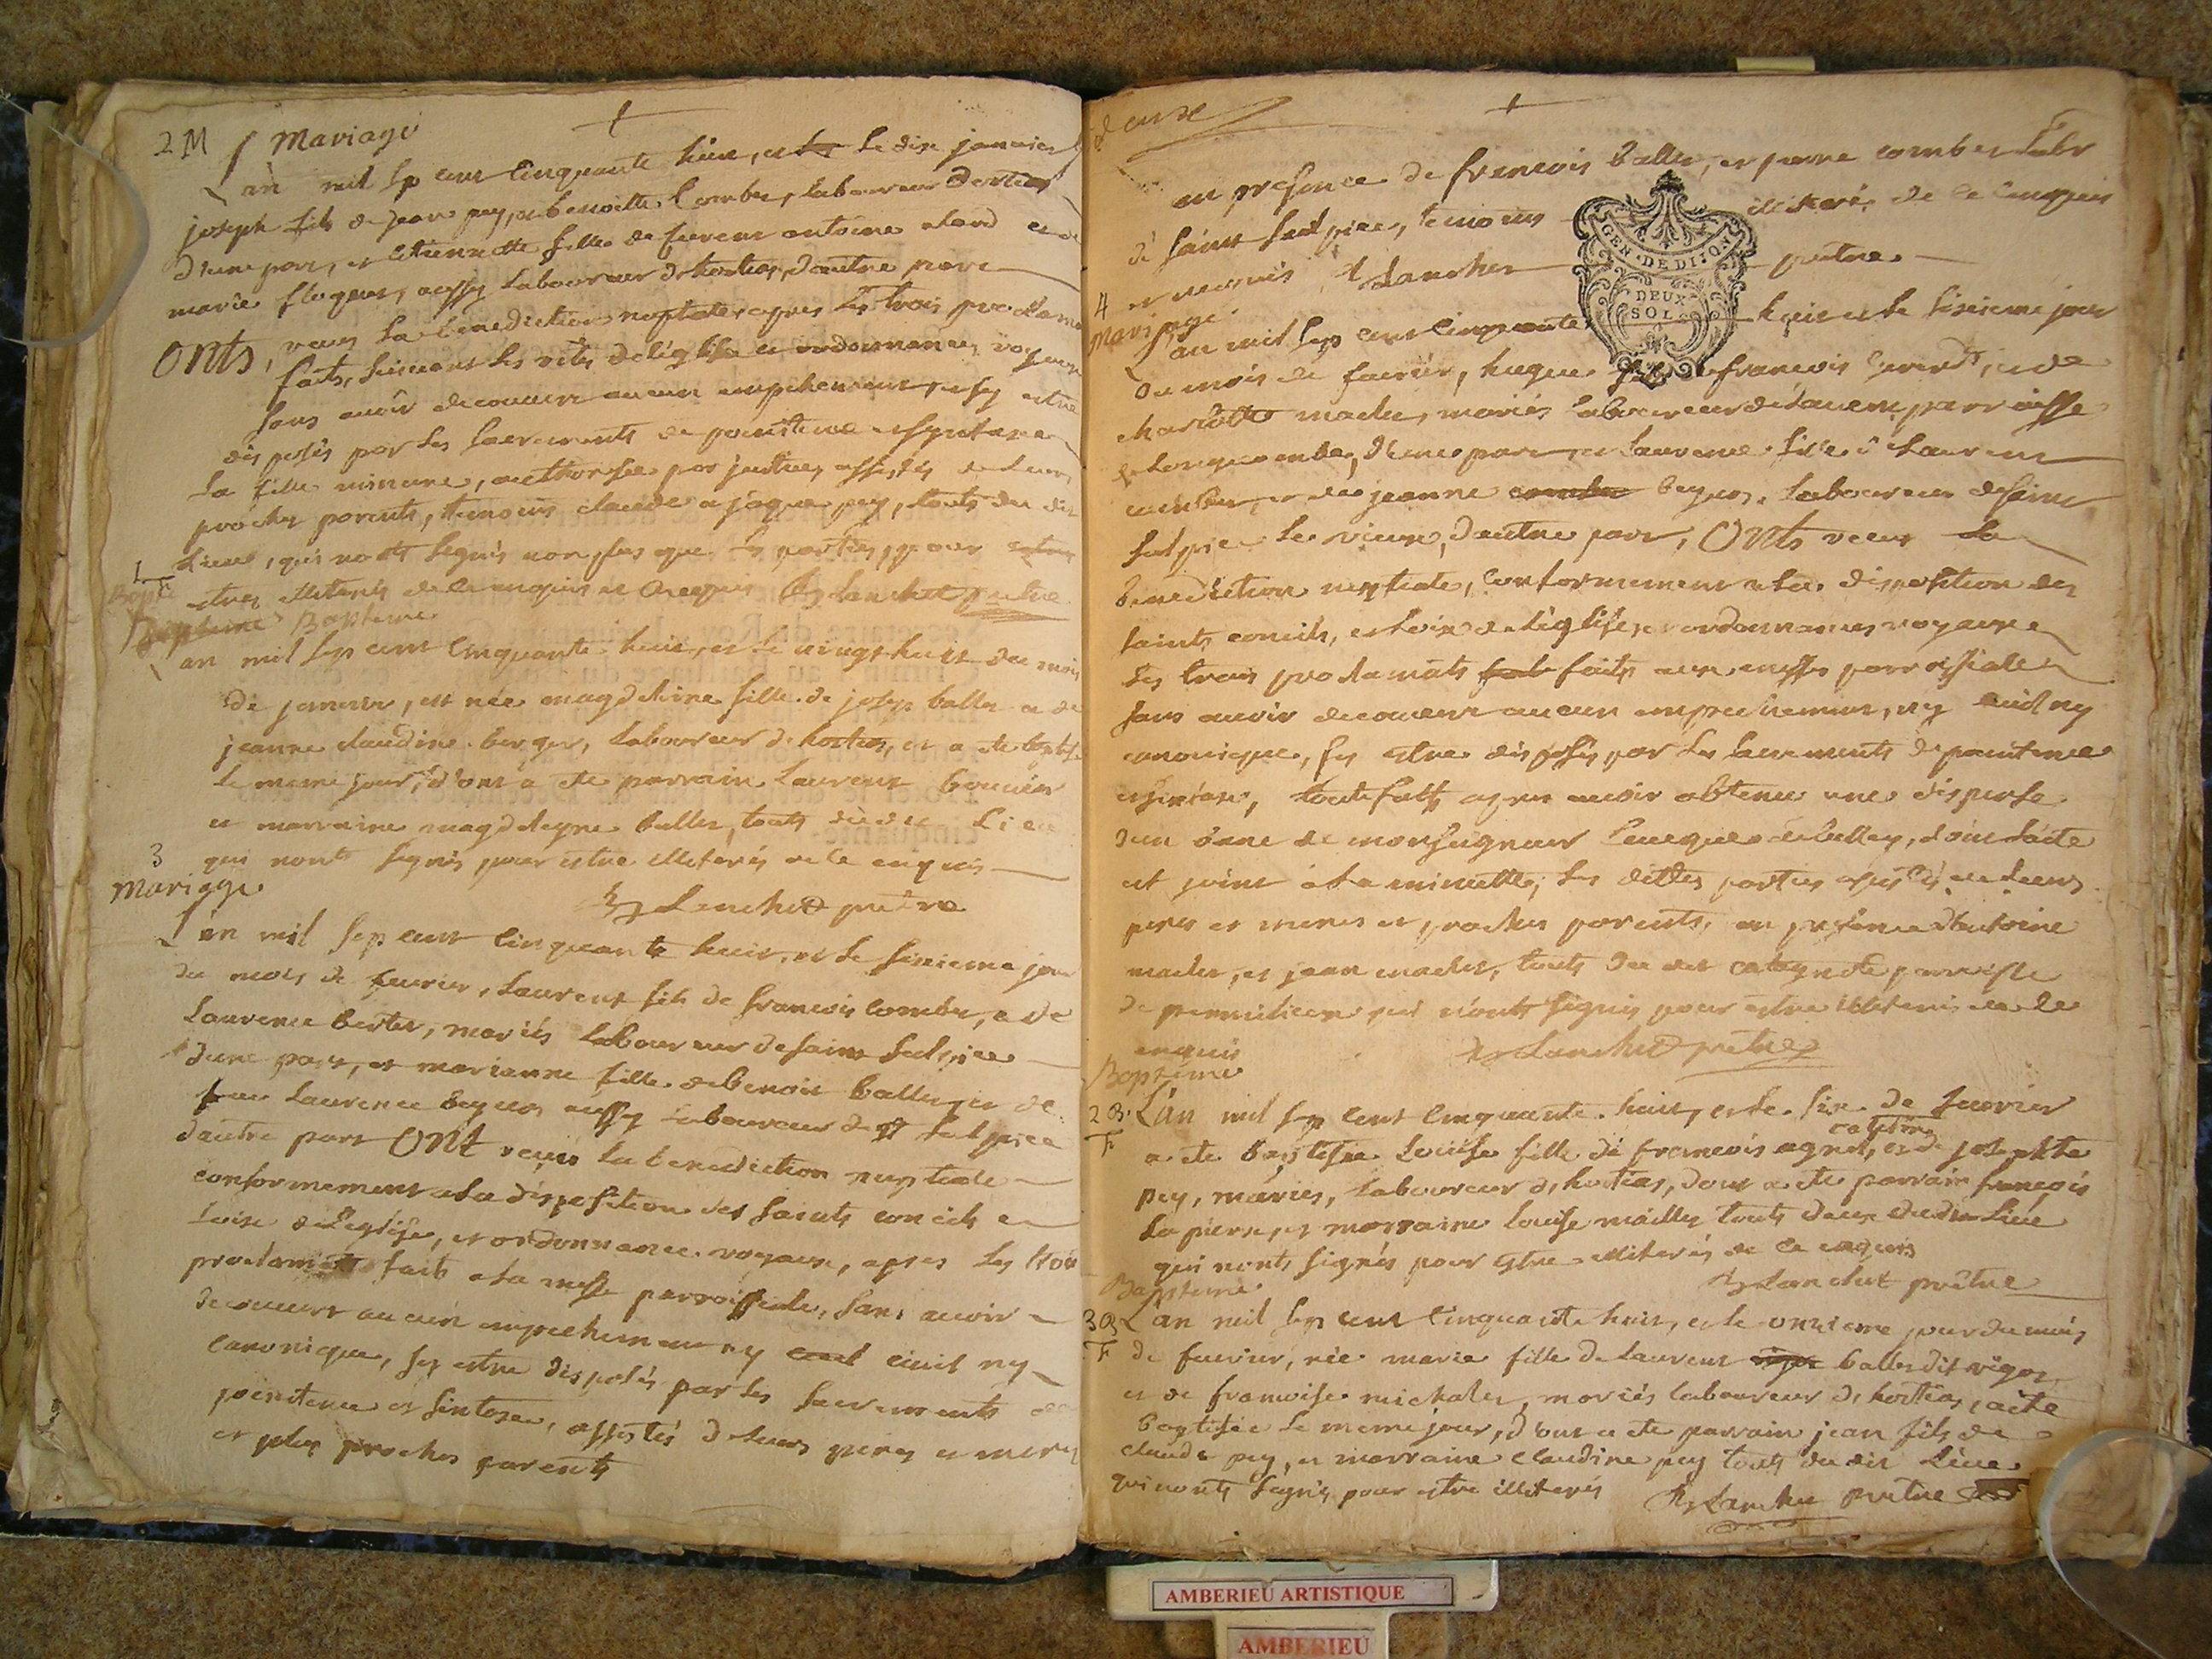 2 M Mariage
L'an mil sep cent cinquante huit, et le dix janvier
joseph fils de jean pey, et benoitte Combet, laboureur
d'une part, et Etiennette fille de Laurent antoine
marie, aussy laboureur d'hostias, d'autre part
Onts, receu la benediction nuptiale, apres les trois proclama
faits, suivant les rits de l'église et ordonnances royaux
sans avoir decouvert aucun empechement, et sy estre
disposés par les sacrements de penitence et syntaxe
la fille mineure, authorisée par justice, assistés de leurs
proches parents, temoins claude et jaque pey, touts du dit
Lieu, qui nonts signés non plus que les parties, pour
estres illiterés de ce enquis et requis Lanchet prêtre
1
Bapt F
Bapteme
L'an mil sep cent cinquante huit, et le vingt huit du mois
de janvier, est née magdeleine fille de josep ballet et de
jeanne claudine berger, laboureur d'hostias, et a été baptisé
le meme jour, d'ont a ete parrain Laurent bouvier
et marraine magdelegne ballet, touts du dit Lieu
qui nonts signés, pour estre illiterés de ce enquis
Lanchet prêtre
3
Mariage
L'an mil sep cent cinquante huit, et le sixieme jour
du mois de fevrier, Laurent fils de francois Combet, et de
Laurence berter, mariés laboureur de saint sulpice
d'une part, et marianne fille de benoit ballet, et de
Laurence beguet aussy laboureur de st sulpice
d'autre part Ont receus la benediction nuptiale
conformement a la disposition des saints concils et
loix de l'eglise, et ordonnance royaux, apres les trois
proclamats faits a la messe parroissiale, sans avoir
decouvert aucun empechement ny civil ny
canonique, sy estre disposés par les sacrements de
penitence et sintaxe, assistés de leurs peres et meres
et plus proches parents
deuxe
en presence de francois ballet, et pierre combet
de saint sulpice, temoins illiterés de ce enquis
et requis Lanchet prêtre
GEN. DE DIJON
DEUX SOL.
4
Mariage
L'an mil sep cent cinquante huit et le sixieme jour
du mois de fevrier, hugue fils de francois, et de
charlotte maclet, mariés laboureur de, parroisse
de Longecombe, d'une part, et laurence fille de Laurent
combet, et de jeanne beguet, laboureur de saint
sulpice le vieux, d'autre part, Onts receus la
benediction nuptiale, conformement a la disposition des
saints concils, et loix de l'église, et ordonnances royaux
les trois proclamats faits aux messes parroissiales
sans avoir decouvert aucun empechement, ny civil ny
canonique, sy estre disposés par les sacrements de penitence
et sintaxe, apres avoir obtenu une dispense
d'un banc de monseigneur l'eveque de belley,
est joint a la minutte, les dittes parties assistés de leurs
peres et meres et proches parents, en presence d'antoine
maclet, et jean maclet, touts du dit parroisse
de premilieu qui n'onts signés pour estre illiterés de ce
enquis Lanchet prêtre
Bapteme
2 B. F L'an mil sep cent cinquante huit, et le six de fevrier
a ete baptisée Louise fille de francois agnel, et de josephte
catherine
pey, mariés, laboureur d'hostias, dont a ete parrain francois
Lapierre, et marraine louise mailler touts deux dudit Lieu
qui nonts signés pour estre illiterés de ce enquis
Lanchet prêtre
Bapteme
3 B F L'an mil sep cent cinquante huit, et le onzieme jour du mois
de fevrier, née marie fille de Laurent ballet dit vigot,
et de francoise michalet, mariés laboureur d'hostias, a été
baptisée le meme jour, d'ont a ete parrain jean fils de
claude pey, et marraine claudine pey touts du dit Lieu
qui nonts signés pour estre illiterés Lanchet prêtre
AMBERIEU ARTISTIQUE
AMBERIEU